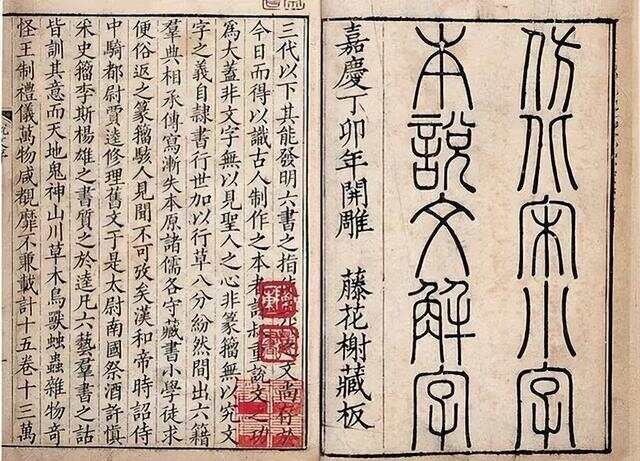 仿北宋小字
本說文解字
嘉慶丁卯年開雕 藤花榭藏板
三代以下其能發明六書之指文尚存於
今日而得以識古人制作之本者許叔重說文之功
爲大蓋非文字無以見聖人之心非篆籀無以究文
字之義自隸書行世加以行草八分紛然間出六籍
羣典相承傳寫漸失本原諸儒各守藏書小學徒求
便俗返之篆籀駭人見聞不可攷矣漢和帝時詔侍
中騎都尉賈逵修理舊文于是太尉南國祭酒許愼
采史籀李斯楊雄之書質之於逵凡六藝羣書之詁
皆訓其意而天地鬼神山川草木鳥獸䖵蟲雜物奇
怪王制禮儀萬物咸覩靡不兼載計十五卷十三萬